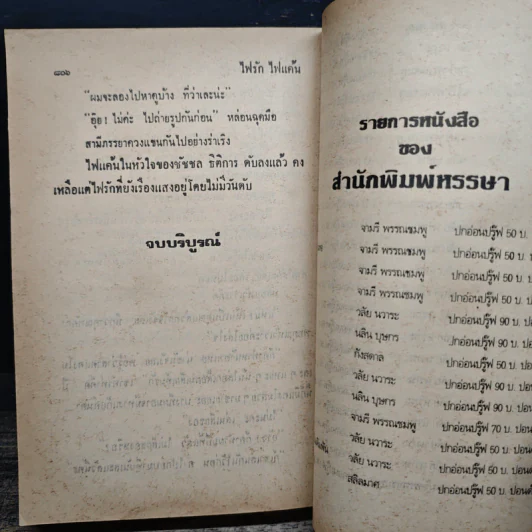 ๘๐๖
ไฟรัก ไฟแค้น
"ผมจะลองไปหาดูบ้าง ที่ว่าเละน่ะ"
"อุ๊ย! ไม่ค่ะ ไปถ่ายรูปกันก่อน" หล่อนฉุดมือ
สามีภรรยาควงแขนกันไปอย่างร่าเริง
ไฟแค้นในหัวใจของชัชชล ธิติการ ดับลงแล้ว คง
เหลือแต่ไฟรักที่ยังเรืองแสงอยู่โดยไม่มีวันดับ
จบบริบูรณ์
รายการหนังสือ
ของ
สำนักพิมพ์หรรษา
จามรี พรรณชมพู ปกอ่อนปรู๊ฟ 50 บ.
จามรี พรรณชมพู ปกอ่อนปรู๊ฟ 50 บ.
จามรี พรรณชมพู ปกอ่อนปรู๊ฟ 50 บ.
จามรี พรรณชมพู ปกอ่อนปรู๊ฟ 50 บ.
วลัย นวาระ ปกอ่อนปรู๊ฟ 90 บ.
นลิน บุษกร ปกอ่อนปรู๊ฟ 90 บ.
กังสดาล ปกอ่อนปรู๊ฟ 50 บ. ปอน
วลัย นวาระ ปกอ่อนปรู๊ฟ 90 บ. ปอน
นลิน บุษกร ปกอ่อนปรู๊ฟ 90 บ. ปอน
จามรี พรรณชมพู ปกอ่อนปรู๊ฟ 70 บ. ปอน
วลัย นวาระ ปกอ่อนปรู๊ฟ 50 บ. ปอน
วลัย นวาระ ปกอ่อนปรู๊ฟ 50 บ. ปอน
สลิลมาศ ปกอ่อนปรู๊ฟ 50 บ. ปอน